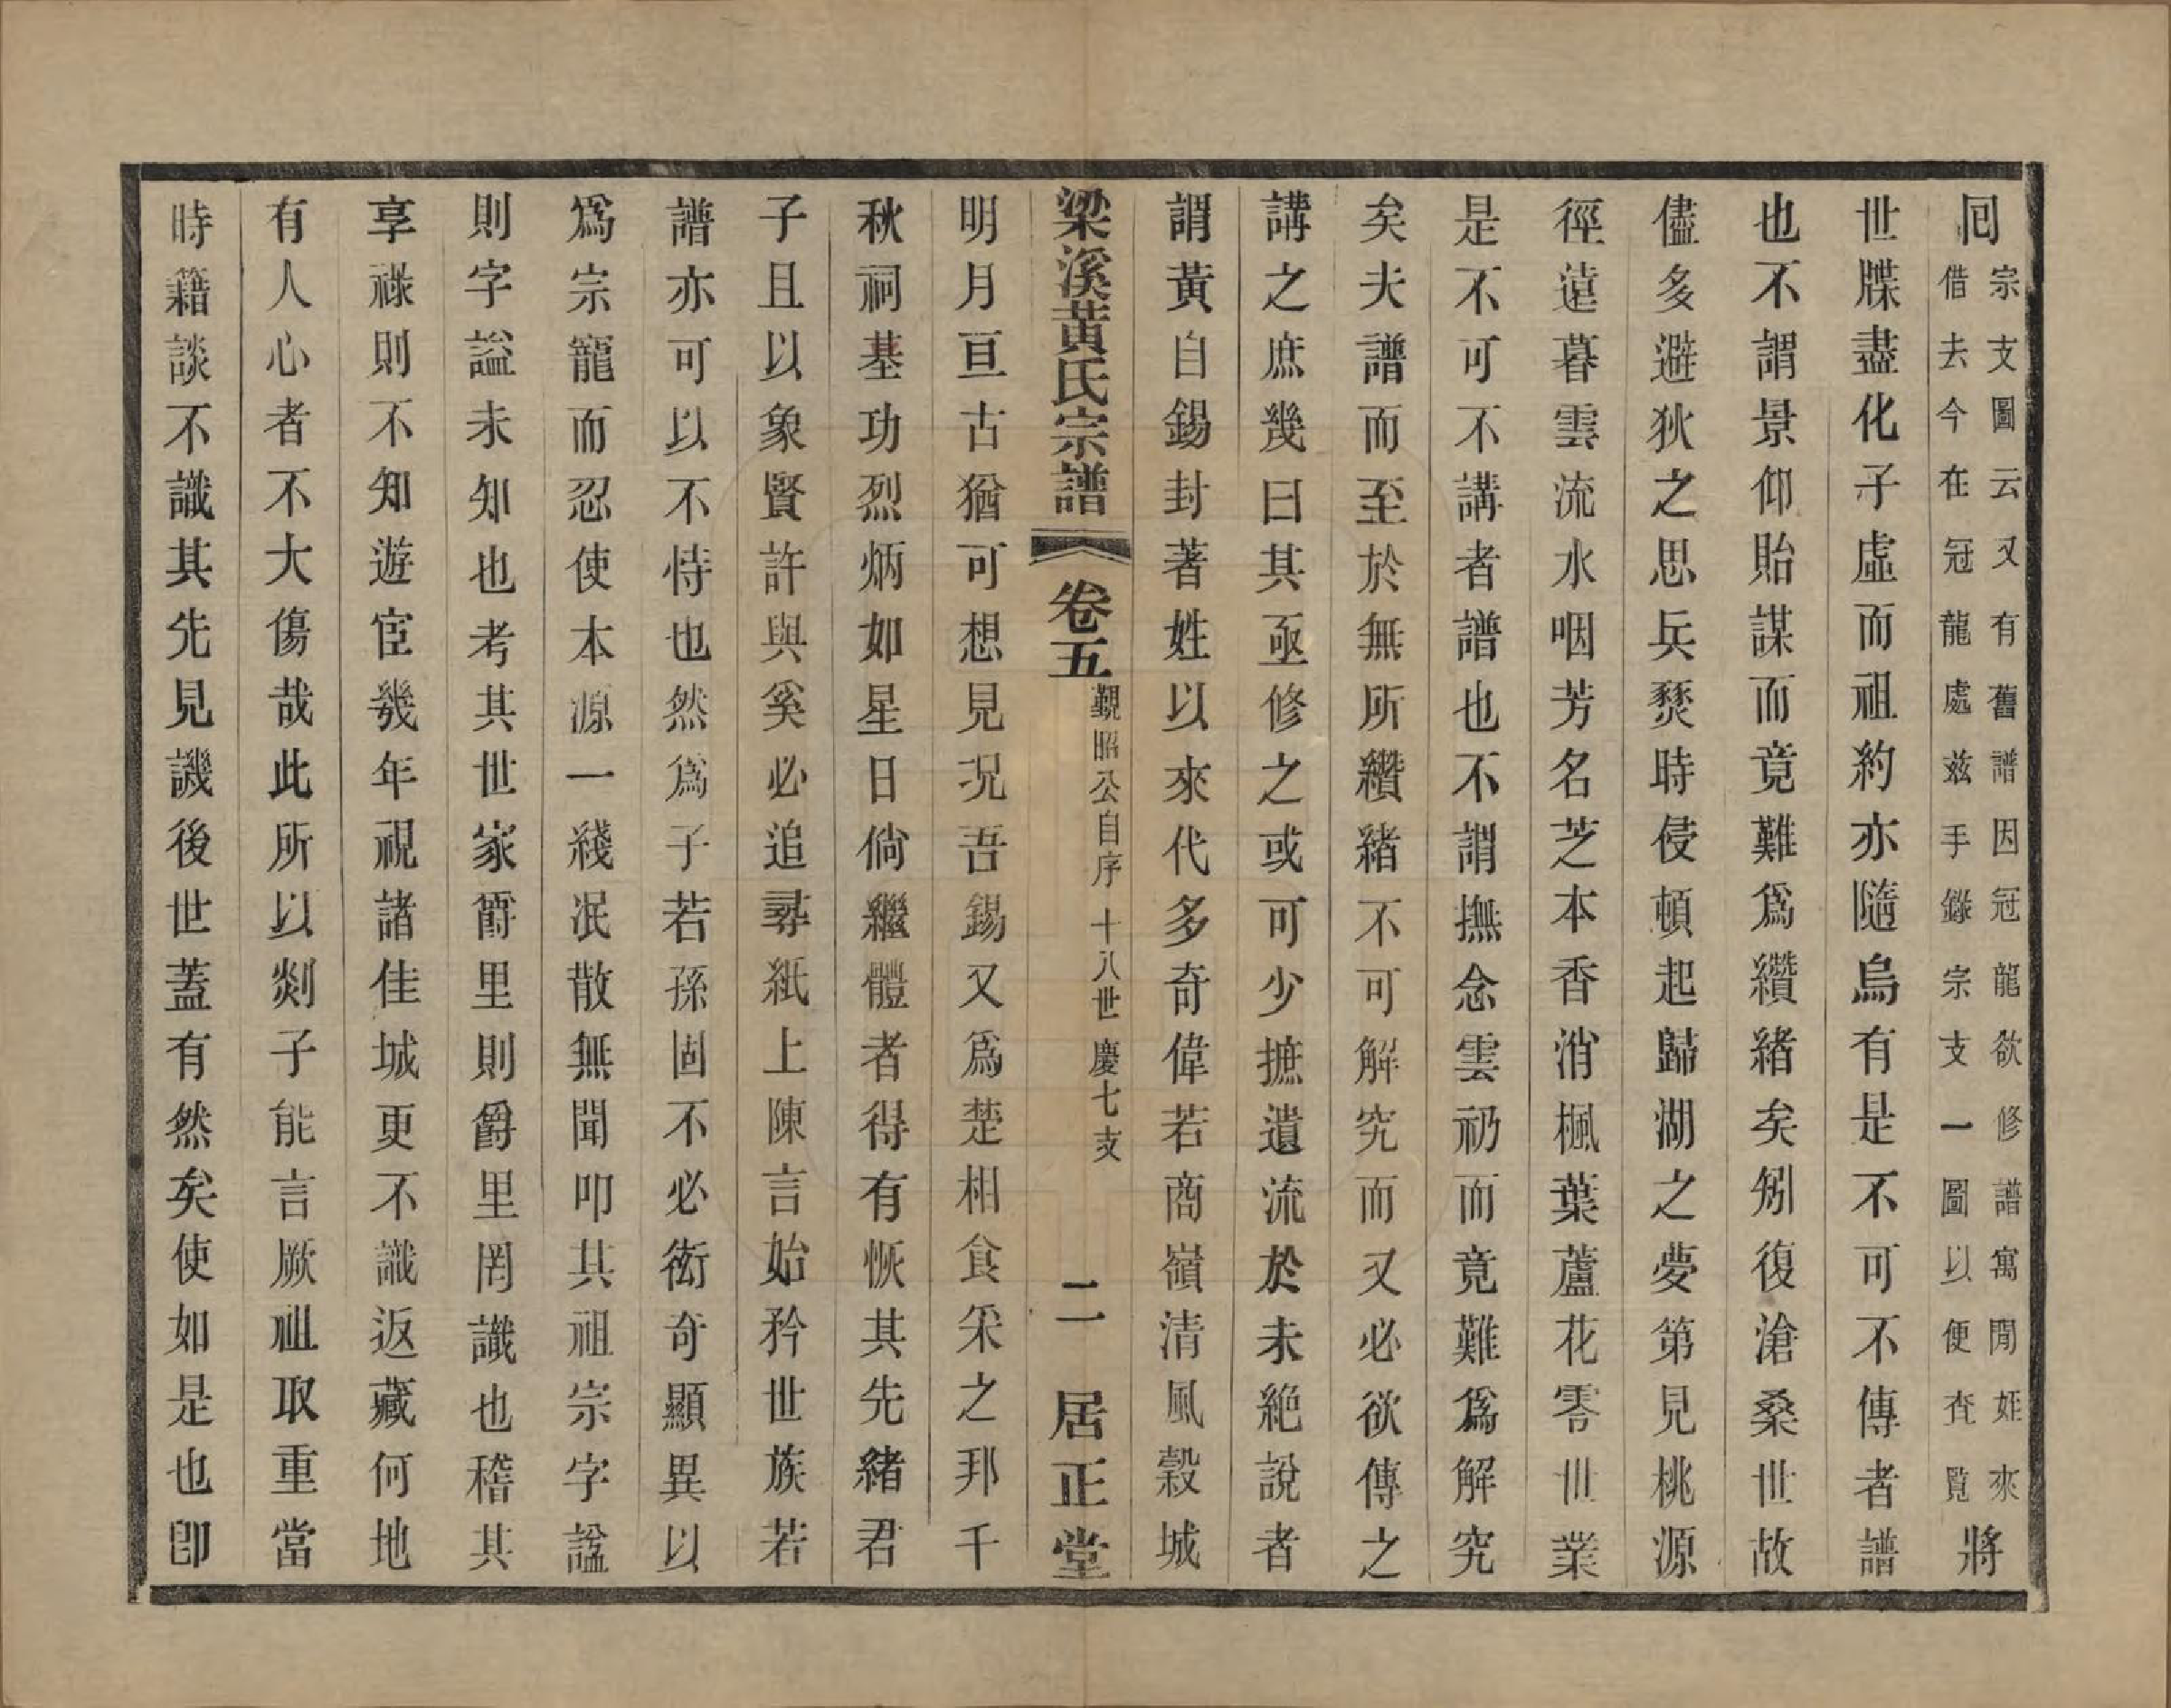 囘宗支圖云又有舊譜因冠龍欲修譜寓閒姪來借去今在冠龍處兹手錄宗支一圖以便查覽將
世牒盡化子虛而祖約亦隨烏有是不可不傳者譜
也不謂景仰貽謀而竟難爲纘緒矣矧復滄桑世故
儘多避狄之思兵燹時侵頓起歸湖之夢第見桃源
徑遠暮雲流水咽芳名芝本香消楓葉蘆花零世業
是不可不講者譜也不謂撫念雲礽而竟難爲解究
矣夫譜而至於無所纘緒不可解究而又必欲傳之
講之庶幾曰其亟修之或可少摭遺流於未絶說者
謂黃自錫封著姓以來代多奇偉若商嶺清風穀城
梁溪黃氏宗譜 卷五 覲昭公自序 十八世 慶七支 二 居正堂
明月亘古猶可想見况吾錫又爲楚相食采之邦千
秋祠墓功烈炳如星日倘繼體者得有恢其先緒君
子且以象賢許與奚必追尋紙上陳言始矜世族若
譜亦可以不恃也然爲子若孫固不必衒奇顯異以
爲宗寵而忍使本源一綫泯散無聞叩其祖宗字諡
則字謚未知也考其世家爵里則爵里罔識也稽其
享祿則不知遊宦幾年視諸佳城更不識返藏何地
有人心者不大傷哉此所以剡子能言厥祖取重當
時籍談不識其先見譏後世蓋有然矣使如是也卽